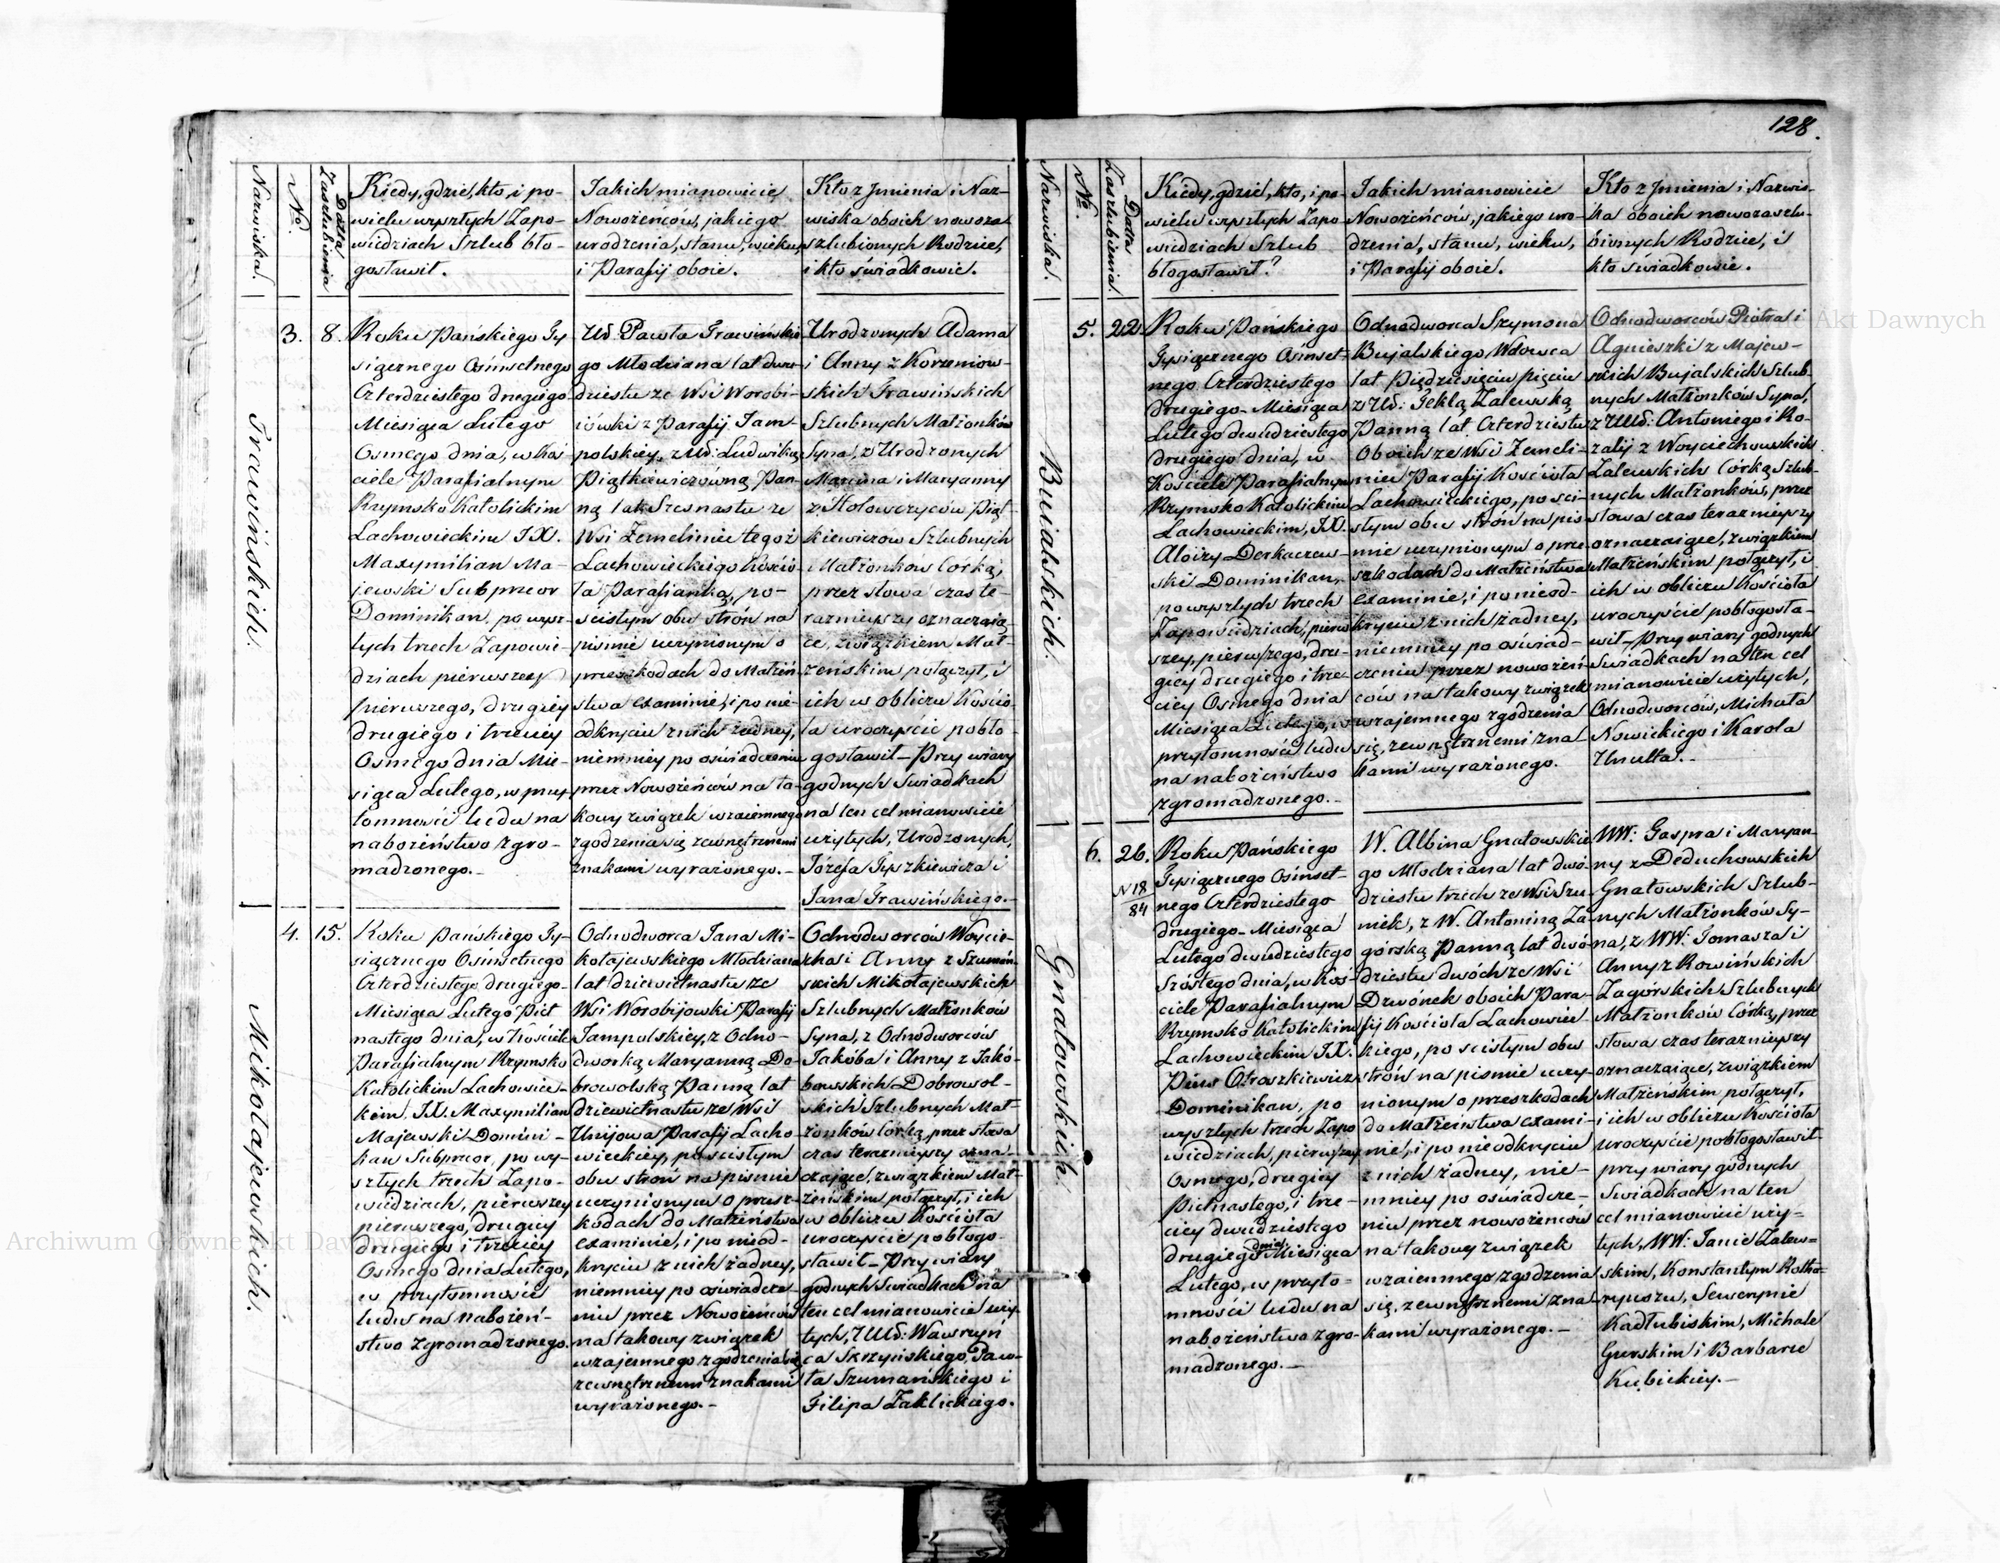 128.
Nazwiska.
№.
Datta
Zaszlubienia
Kiedy, gdzie, kto, i po-
wielu wyszłych Zapo-
wiedziach Szlub bło-
gosławił.
Jakich mianowicie
Nowożeńców, jakiego
urodzenia, stanu, wieku,
i Parafij oboie.
Kto z Jmienia i Naz-
wiska oboich nowoza-
szlubionych Rodzice,
i kto świadkowie.
Trawińskich.
3.
8.
Roku Pańskiego Ty-
siącznego Ośmsetnego
Czterdziestego drugiego
Miesiąca Lutego
Osmego dnia, w Koś-
ciele Parafialnym
Rzymsko Katolickim
Lachowieckim JX.
Maxymilian Ma-
jewski Subpreor
Dominikan, po wysz-
łych trzech Zapowie-
dziach pierwszey
pierwszego, drugiey
drugiego i trzeciey
Osmego dnia Mie-
siąca Lutego, w przy-
tomności ludu na
nabożeństwo zgro-
madzonego.-
Ur. Pawła Trawińskie-
go Młodziana lat dwu-
dziestu ze Wsi Worobi-
iówki z Parafij Jam-
polskiey, z Ur: Ludwiką
Piątkiewiczówną Pan-
ną lat Szesnastu ze
Wsi Zemeliniec tegoż
Lachowieckiego Kościo-
ła Parafianką, po-
scisłym obu strón na
pismie uczynionym o
przeszkodach do Małżeń-
stwa examinie, i po nie-
odkryciu z nich żadney,
niemniey po oświadczeniu
przez Nowożeńców na ta-
kowy związek wzaiemnego
zgodzenia się zewnętrznemi
znakami wyrażonego.-
Urodzonych Adama
i Anny z Korzeniow-
skich Trawińskich
Szlubnych Małżonków
Syna, z Urodzonych
Marcina i Maryanny
z Hołowczyców Piąt-
kiewiczow Szlubnych
Małżonkow Córką,
przez słowa czas te-
raznieyszy oznaczaią-
ce, związkiem Mał-
żeńskim połączył, i
ich w obliczu Kościo-
ła uroczyście pobło-
gosławił - Przy wiary
godnych Swiadkach
na ten cel mianowicie
użytych, Urodzonych,
Józefa Tyszkiewicza i
Jana Trawińskiego.-
Mikołajewskich.
4.
15.
Roku Pańskiego Ty-
siącznego Ośmsetnego
Czterdziestego drugiego-
Miesiąca Lutego Piet-
nastego dnia, w Kościele
Parafialnym Rzymsko
Katolickim Lachowiec-
kim, JX. Maxymilian
Majewski Domini-
kan Subpreor, po wy-
szłych trzech Zapo-
wiedziach, pierwszey
pierwszego, drugiey
drugiego i trzeciey
Osmego dnia Lutego,
w przytomności
ludu na nabożeń-
stwo zgromadzonego.
Odnodworca Jana Mi-
kołajewskiego Młodziana
lat dziewietnastu ze
Wsi Worobijowki Parafij
Jampolskiey, z Odno-
dworką Maryanną Do-
browolską Panną lat
dziewietnastu ze Wsi
Unijowa Parafij Lacho-
wieckiey, po scisłym
obu strón na pismie
uczynionym o przesz-
kodach do Małżeństwa
examinie, i po nieod-
kryciu z nich żadney,
niemniey po oświadcze-
niu przez Nowożeńców
na takowy związek
wzajemnego zgodzenia się
zewnętrznemi znakami
wyrażonego.-
Odnodworców Woycie-
cha i Anny z Szumań-
skich Mikołajewskich
Szlubnych Małżonków
Syna, z Odnodworców
Jakóba i Anny z Jakó-
bowskich Dobrowol-
skich Szlubnych Mał-
żonków Córką, przez słowa
czas teraznieyszy ozna-
czające, związkiem Mał-
żeńskim połączył, i ich
w obliczu Kościoła
uroczyście pobłogo-
sławił - Przy wiary
godnych Swiadkach na
ten cel mianowicie uży-
tych, Ur: Wawrzyń-
ca Skrzyńskiego, Paw-
ła Szumańskiego i
Filipa Zaklickiego.
Nazwiska.
№.
Datta
Zaszlubienia.
Kiedy, gdzie, kto, i po-
wielu wyszłych Zapo
wiedziach Szlub
błogosławił?
Jakich mianowicie
Nowożeńców, jakiego uro-
dzenia, stanu, wieku,
i Parafij oboie.
Kto z Jmienia i Nazwis-
ka oboich nowozaszlu-
bionych Rodzice, i
kto świadkowie.
Bujalskich.
5.
22
Roku Pańskiego
Tysiącznego Ośmset-
nego Czterdziestego
drugiego- Miesiąca
Lutego dwudziestego
drugiego dnia, w
Kościele Parafialnym
Rzymsko Katolickim
Lachowieckim, JX.
Aloizy Derkaczew-
ski Dominikan,
po wyszłych trzech
Zapowiedziach, pierw-
szey, pierwszego, dru-
giey drugiego i trze-
ciey Osmego dnia
Miesiąca Lutego, w
przytomności ludu
na nabożeństwo
zgromadzonego.-
Odnodworca Szymona
Bujalskiego Wdowca
lat Pięćdziesięciu pięciu
z Ur: Teklą Zalewską
Panną lat Czterdziestu
Oboich ze Wsi Zemeli-
niec Parafij Kościoła
Lachowieckiego, po sci-
słym obu strón na pis-
mie uczynionym o prze-
szkodach do Małżeństwa
examinie, i po nieod-
kryciu z nich żadney,
niemniey po oświad-
czeniu przez nowożeń-
ców na takowy związek
wzajemnego zgodzenia
się, zewnętrznemi zna-
kami wyrażonego.
Odnodworców Piotra i
Agnieszki z Majew-
skich Bujalskich Szlub-
nych Małżonków Syna,
z Ur: Antoniego i Ro-
zalij z Woyciechowskich
Zalewskich Córką Szlub-
nych Małżonków, przez
słowa czas teraznieyszy
oznaczaiące, związkiem
Małżeńskim połączył, i
ich w obliczu Kościoła
uroczyście pobłogosła-
wił - Przy wiary godnych
Swiadkach na ten cel
mianowicie użytych,
Odnodworców, Michała
Nowickiego i Karola
Gnatowskich.
6.
26.
N 18
84
Roku Pańskiego
Tysiącznego Ośmset-
nego Czterdziestego
drugiego- Miesiąca
Lutego dwudziestego
Szóstego dnia, w Koś-
ciele Parafialnym
Rzymsko Katolickim
Lachowieckim JX.
Pius Otroszkiewicz
Dominikan, po
wyszłych trzech Zapo
wiedziach, pierwszey
Osmego, drugiey
Pietnastego, i trze-
ciey dwudziestego
drugiego dnia Miesiąca
Lutego, w przyto-
mności ludu na
nabożeństwo zgro-
madzonego.-
W. Albina Gnatowskie-
go Młodziana lat dwó-
dziestu trzech ze Wsi Szu-
miek, z W. Antoniną Za-
górską Panną lat dwó-
dziestu dwóch ze Wsi
Dzwonek oboich Para-
fij Kościoła Lachowiec-
kiego, po scisłym obu
strón na pismie uczy-
nionym o przeszkodach
do Małżeństwa exami-
nie, i po nieodkryciu
z nich żadney, nie-
mniey po oświadcze-
niu przez nowożeńców
na takowy związek
wzaiemnego zgodzenia
się, zewnętrznemi zna-
kami wyrażonego.-
WW: Gaspra i Maryan-
ny z Deduchowskich
Gnatowskich Szlub-
nych Małżonków Sy-
na, z WW: Tomasza i
Anny z Rowińskich
Zagórskich Szlubnych
Małżonków Córką, przez
słowa czas teraznieyszy
oznaczaiące, związkiem
Małżeńskim połączył,
i ich w obliczu Kościoła
uroczyście pobłogosławił-
przy wiary godnych
Swiadkach na ten
cel mianowicie uży-
tych, WW: Janie Zalew-
skim, Konstantym Rotha-
ryuszu, Sewerynie
Kadłubiskim, Michale
Gurskim i Barbarze
Kubickiey.-
Archiwum Główne Akt Dawnych
Akt Dawnych